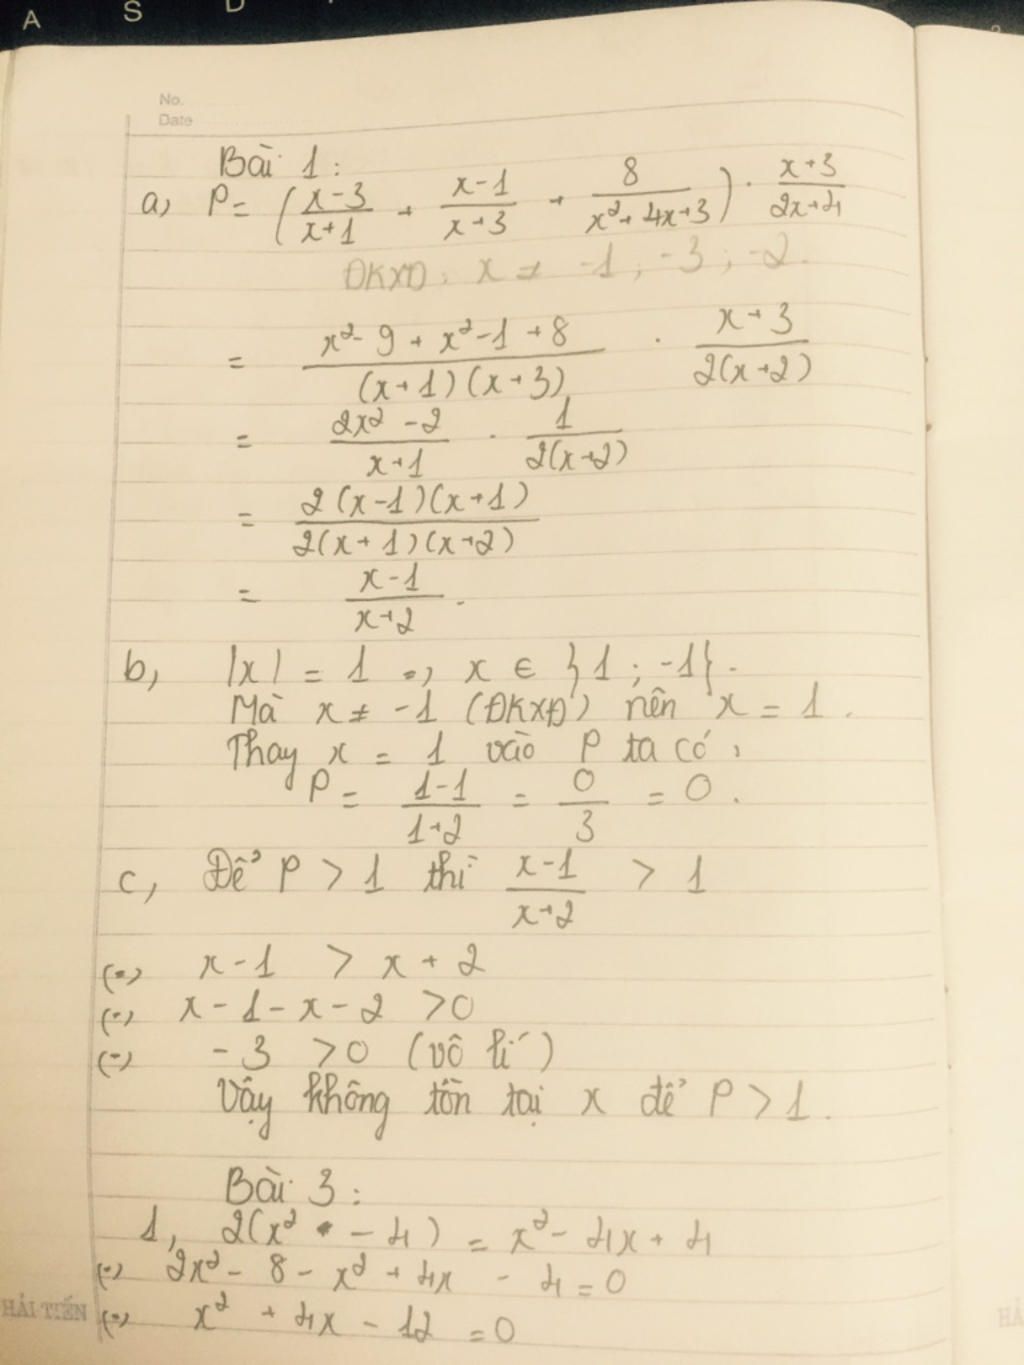 A S D
No.
Date
Bài 1:
a, P = ( (x-3)/(x+1) + (x-1)/(x+3) + 8/(x²+4x+3) ) · (x+3)/(2x+4)
ĐKXĐ: x ≠ -1; -3; -2.
= (x²-9+x²-1+8)/((x+1)(x+3)) · (x+3)/(2(x+2))
= (2x²-2)/(x+1) · 1/(2(x+2))
= (2(x-1)(x+1))/(2(x+1)(x+2))
= (x-1)/(x+2).
b, |x| = 1 => x ∈ {1; -1}.
Mà x ≠ -1 (ĐKXĐ) nên x = 1.
Thay x = 1 vào P ta có:
P = (1-1)/(1+2) = 0/3 = 0.
c, Để P > 1 thì (x-1)/(x+2) > 1
(=) x-1 > x+2
(=) x-1-x-2 > 0
(=) -3 > 0 (vô lí)
Vậy không tồn tại x để P > 1.
Bài 3:
1, 2(x² - 4) = x² - 4x + 4
(=) 2x² - 8 - x² + 4x - 4 = 0
HẢI TIẾN (=) x² + 4x - 12 = 0